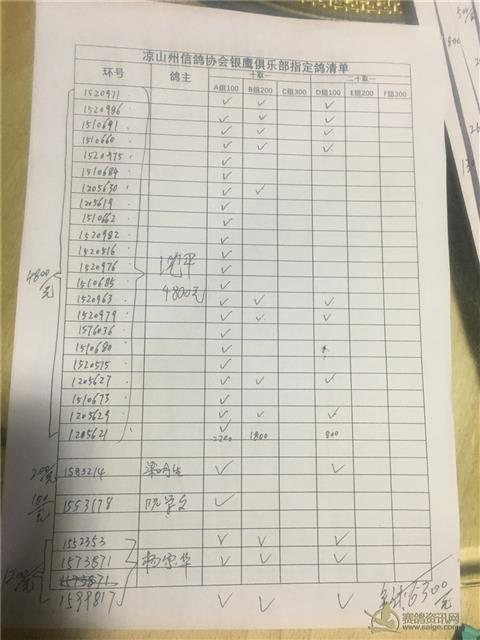 凉山州信鸽协会银鹰俱乐部指定鸽清单
环号 鸽主 十取一 二十取一
A组100 B组200 C组300 D组100 E组200 F组300
1520971 ✓ ✓ ✓
1520986 ✓ ✓ ✓
1510691 ✓ ✓ ✓
1510660 ✓ ✓ ✓
1520975 ✓
1510684 ✓
1205630 ✓ ✓
1205619 ✓
1510662 ✓
1520982 ✓
1520516 ✓
1520976 ✓
1510685 ✓
1520963 ✓ ✓ ✓
1520979 ✓ ✓ ✓
1576036 ✓
1510680 ✓
1520515 ✓
1205627 ✓ ✓ ✓
1510673 ✓
1205629 ✓ ✓ ✓
1205621 ✓
4800元
沈平
4800元
2200 1800 800
200元 1583214 ✓ ✓
100元 1553178 阮学文 ✓
1552353 ✓ ✓ ✓
1573871 杨宗华 ✓ ✓ ✓
1573871
1599817 ✓ ✓ ✓
1200元
6300元
赛鸽资讯网
www.saige.com